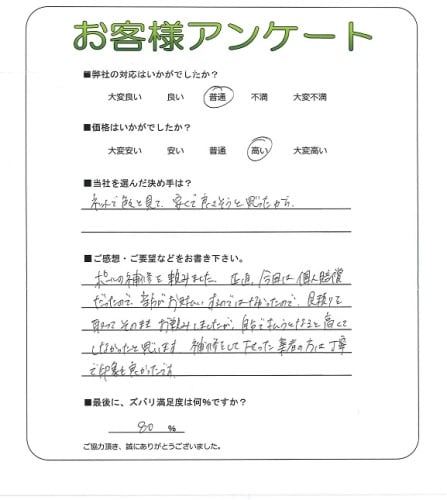 お客様アンケート
■弊社の対応はいかがでしたか？
大変良い 良い 普通 不満 大変不満
■価格はいかがでしたか？
大変安い 安い 普通 高い 大変高い
■当社を選んだ決め手は？
ネットで を見て、安くて良さそうと思ったから。
■ご感想・ご要望などをお書き下さい。
ポールの補修を頼みました。正直、今回は個人賠償
だったので、 がお支払い するのではなかったので、見積りを
取って そのまま お頼みしましたが、自分で払うとなると高くて
しなかったと思います 補修をして下さった業者の方は丁寧
で印象も良かったです。
■最後に、ズバリ満足度は何％ですか？
80 ％
ご協力頂き、誠にありがとうございました。